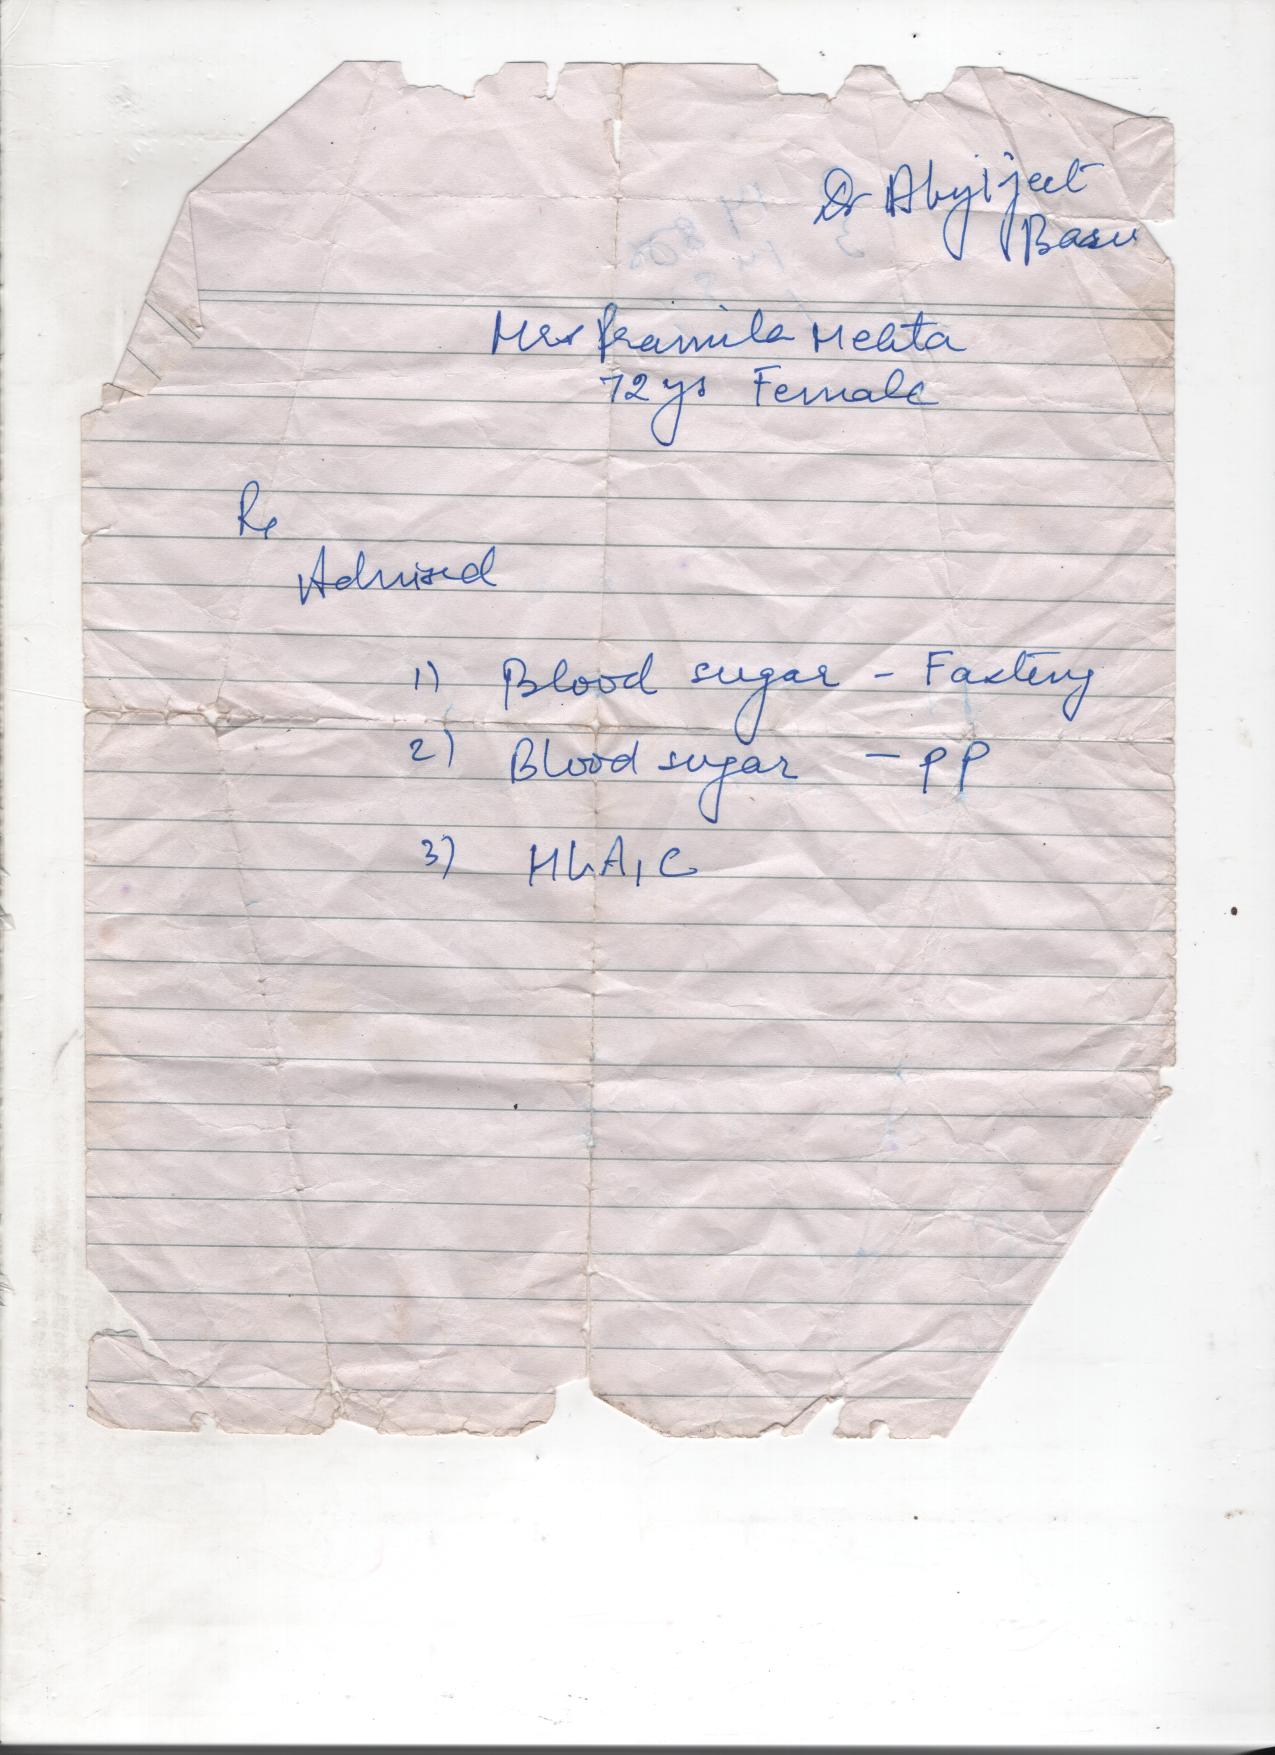 Dr Abyijeet
Basu
Mrs Pramila Mehta
72 ys Female
Rx
Advised
1) Blood sugar - Fasting
2) Blood sugar - PP
3) HbA1C